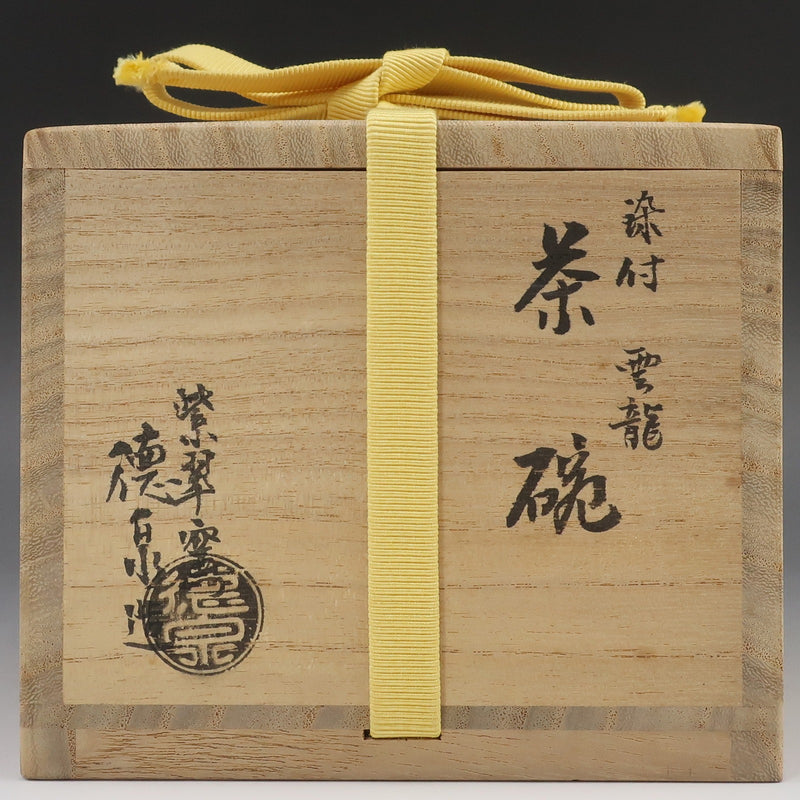 染付 雲龍
茶碗
紫翠窯
徳泉造
徳泉